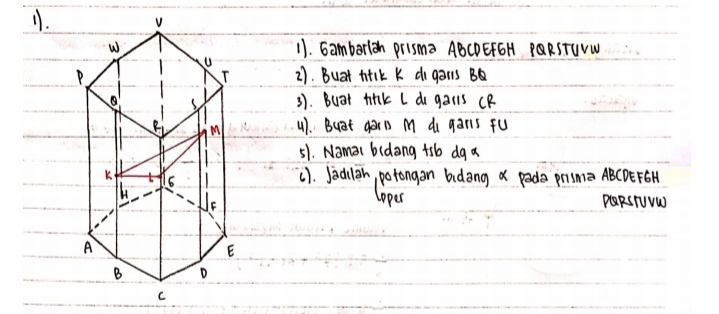 1).
V
W
U
P
T
Q
S
R
M
K
L
G
H
F
A
E
B
D
C
1). Gambarlah prisma ABCDEFGH PQRSTUVW
2). Buat titik K di garis BQ
3). Buat titik L di garis CR
4). Buat garis M di garis FU
5). Namai bidang tsb dg α
6). Jadilah potongan bidang α pada prisma ABCDEFGH
PQRSTUVW